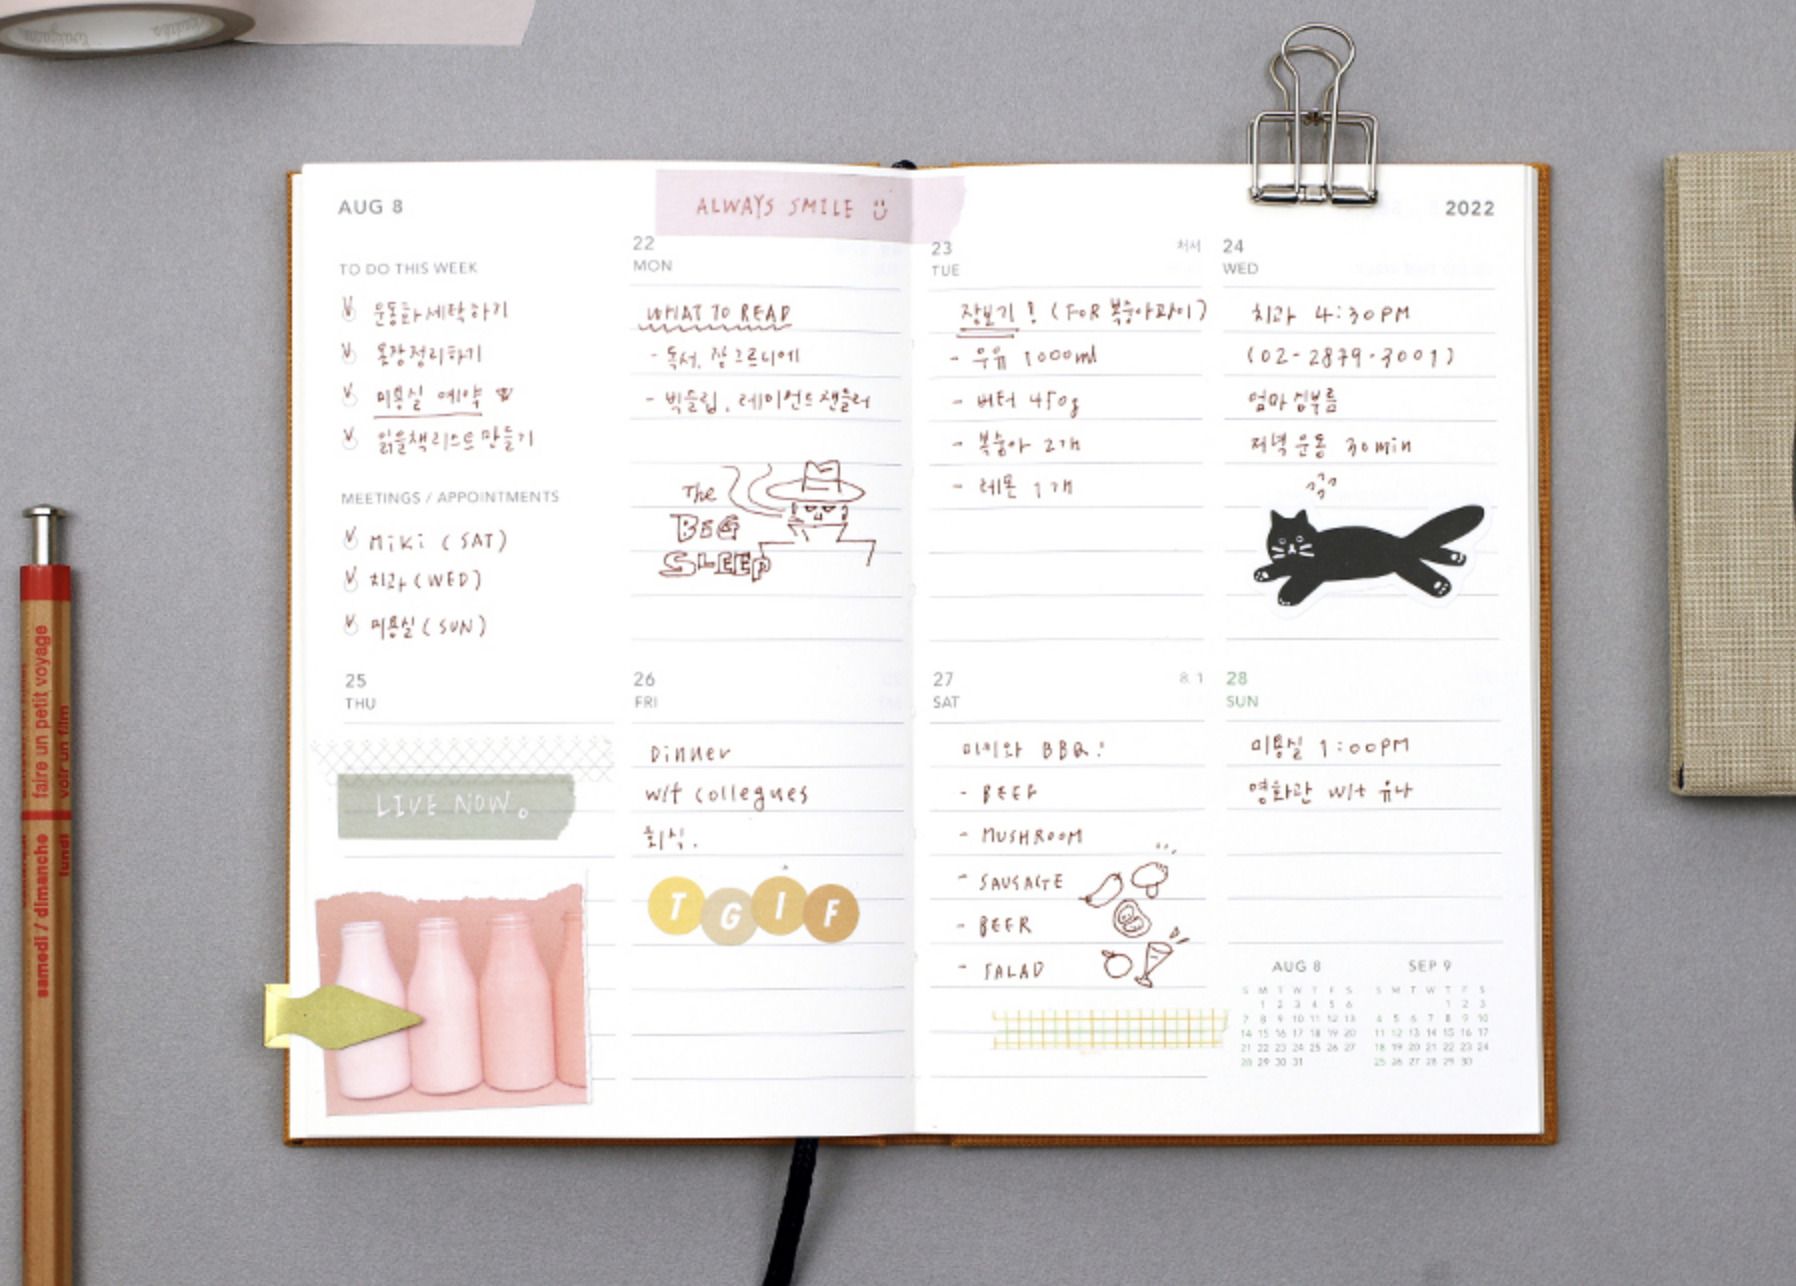 AUG 8
ALWAYS SMILE
2022
TO DO THIS WEEK
운동화 세탁하기
옷장정리하기
미용실 예약
읽을책리스트 만들기
MEETINGS / APPOINTMENTS
MiKi (SAT)
치과 (WED)
미용실 (SUN)
22
MON
WHAT TO READ
- 독서, 장 그르니에
- 빅슬립, 레이먼드 챈들러
The
BIG
SLEEP
23
처서
TUE
장보기! (FOR 복숭아파이)
- 우유 1000ml
- 버터 450g
- 복숭아 2개
- 레몬 1개
24
WED
치과 4:30PM
(02-2879-3001)
엄마심부름
저녁 운동 30min
25
THU
LIVE NOW.
26
FRI
Dinner
w/t collegues
회식.
TGIF
27
8. 1
SAT
미키와 BBQ!
- BEEF
- MUSHROOM
- SAUSAGE
- BEER
- SALAD
28
SUN
미용실 1:00PM
영화관 w/t 유나
AUG 8
S M T W T F S
1 2 3 4 5 6
7 8 9 10 11 12 13
14 15 16 17 18 19 20
21 22 23 24 25 26 27
28 29 30 31
SEP 9
S M T W T F S
1 2 3
4 5 6 7 8 9 10
11 12 13 14 15 16 17
18 19 20 21 22 23 24
25 26 27 28 29 30
faire un petit voyage
voir un film
samedi / dimanche
lundi